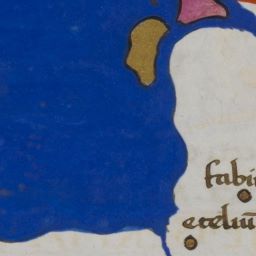 fabi
eteliū